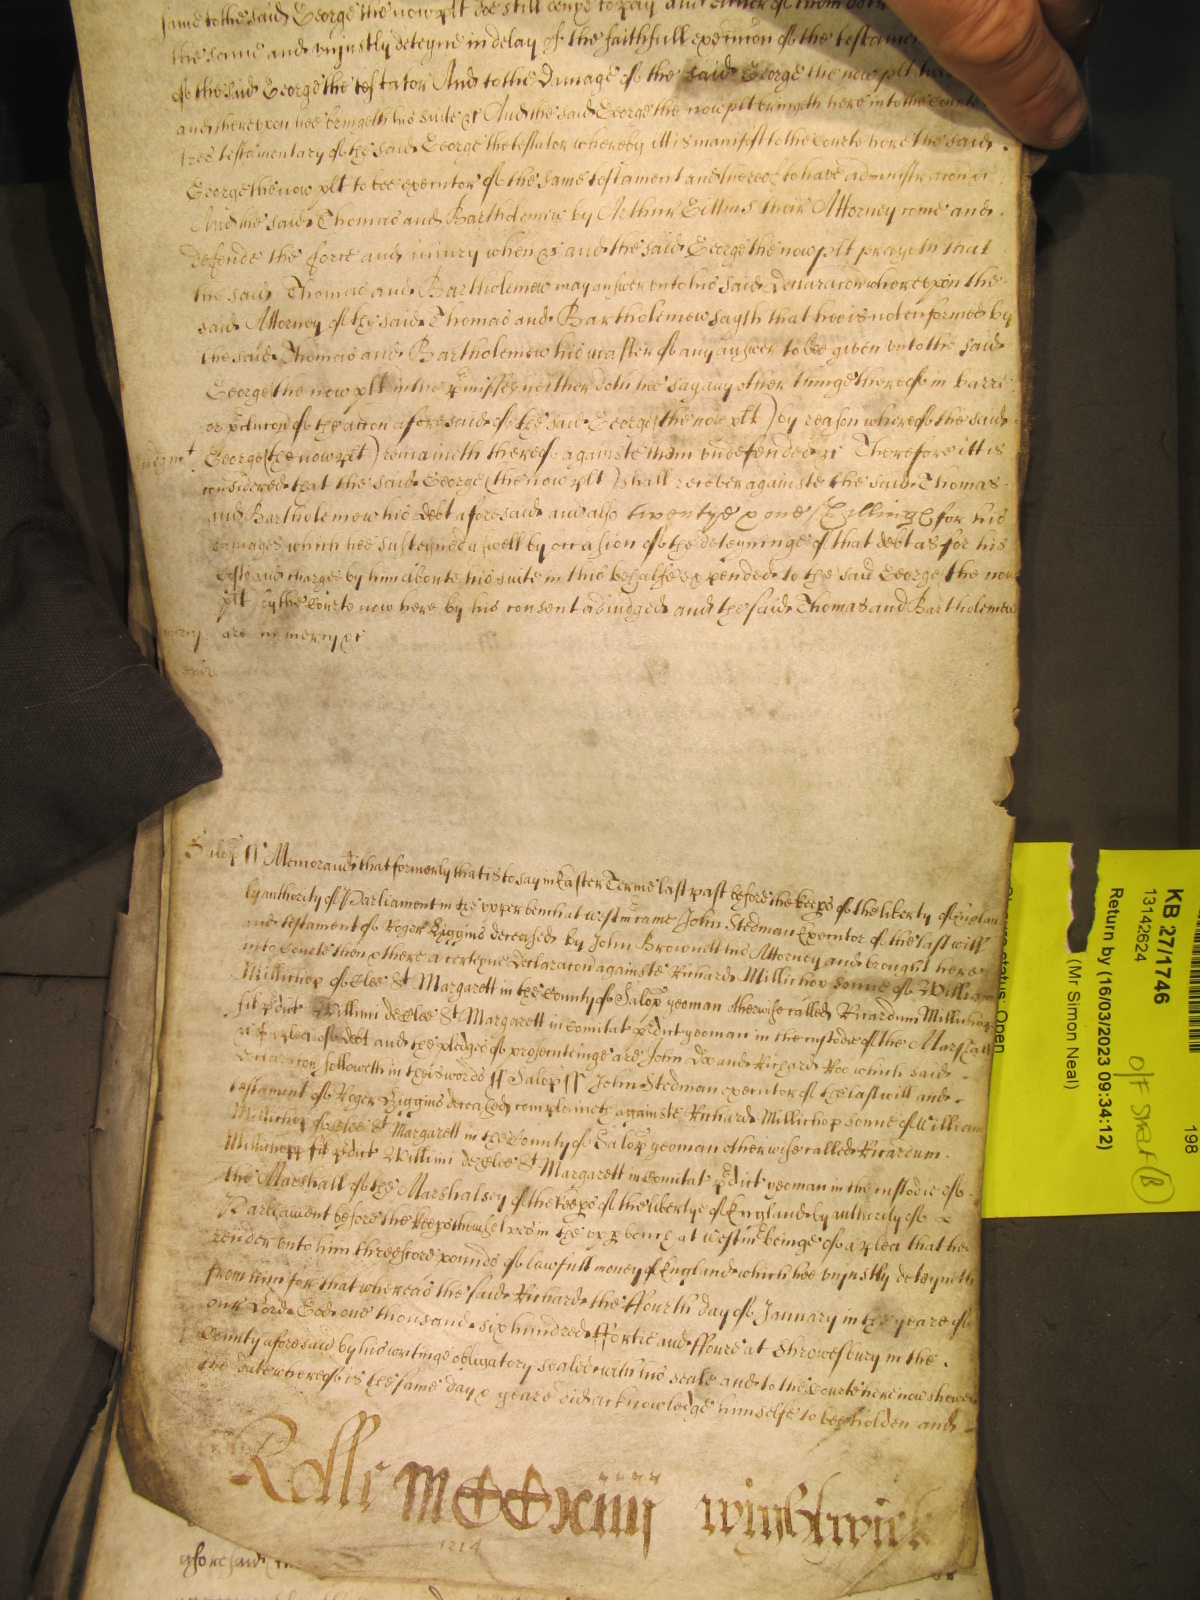 same to the said George the now plt
the same and unjustly deteyne in delay of the faithfull execucon of the testament
of the said George the testator And to the Damage of the said George the now plt
and thereupon hee bringeth his suite &c And the said George the now plt bringeth here into the Courte
tres testamentary of the said George the testator whereby itt is manifest to the Courte here the said
George the now plt to bee executor of the same testament and thereof to have administracon &c
And the said Thomas and Bartholemew by Arthur their Attorney come and
defende the force and iniury when &c and the said George the now plt prayeth that
the said Thomas and Bartholemew may answer unto his said Declaracon whereupon the
said Attorney of the said Thomas and Bartholemew sayth that hee is not enformed by
the said Thomas and Bartholemew his master of any answer to bee given unto the said
George the now plt in the pmisses neither doth hee say any other thinge thereof in barre
or pclucon of the accon aforesaid of the said George (the now plt) by reason whereof the said
Judgmt George (the now plt) remaineth thereof againste them undefended &c Therefore itt is
considered that the said George (the now plt) shall recover againste the said Thomas
and Bartholemew his debt aforesaid and also twentye & one shillings for his
damages which hee susteyned aswell by occasion of the deteyninge of that debt as for his
costs and charges by him aboute his suite in this behalfe expended to the said George (the now
plt) by the Courte now here by his consent adiudged and the said Thomas and Bartholemew
mercy are in mercy &c
Salop ss Memorand that formerly that is to say in Easter Terme last past before the keeps of the liberty of England
by authority of Parliament in the upper bench at Westm came John Stedman Executor of the last will
and testament of Roger Higgins deceased by John Brownell his Attorney and brought here
into Courte then & there a certeyne Declaracon againste Richard Millichop sonne of William
Millichop of Clee St Margarett in the County of Salop yeoman otherwise called Ricardum Millichop
fil pdict Willimi de Clee St Margarett in Comitat pdict yeoman in the custodie of the Marshall
&c of a plea of debt and the pledges of prosecuteinge are John Doe and Richard Roe which said
Declaracon followeth in theis words ss Salop ss John Stedman executor of the last will and
testament of Roger Higgins deceased complaineth againste Richard Millichop sonne of William
Millichop of Clee St Margarett in the County of Salop yeoman otherwise called Ricardum
Millichopp fil pdict Willimi de Clee St Margarett in Comitat pdict yeoman in the custodie of
the Marshall of the Marshalsey of the keeps of the libertye of England by authority of
Parliament before the keeps themselves in the upp bench at Westm beinge of a plea that hee
render unto him threescore pounds of lawfull money of England which hee unjustly deteyneth
from him for that whereas the said Richard the ffourth day of January in the yeare of
our Lord God one thousand six hundred ffortie and ffoure at Shrowesbury in the
County aforesaid by his writinge obligatory sealed with his seale and to the Courte here now shewen
the date whereof is the same day & yeare did acknowledge himselfe to bee holden and
Rolle
1214
aforesaid
KB 27/1746
13142624
Return by (16/03/2023 09:34:12)
(Mr Simon Neal)
status: Open
198
O/F
(B)